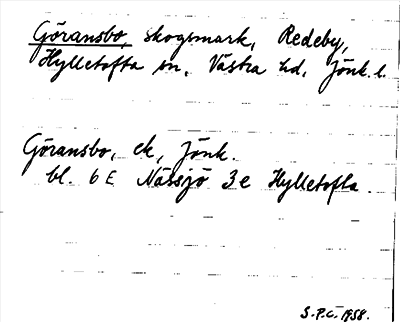 Göransbo, skogsmark, Redeby,
Hylletofta sn, Västra hd, Jönk. l.
Göransbo, ek, Jönk.
bl. 6 E Nässjö 3 e Hylletofta.
S.P.C. 1958.